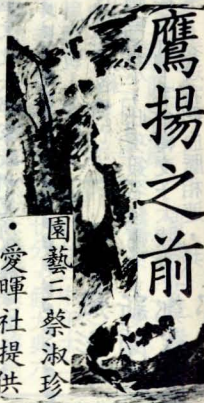 鷹揚之前
園藝三蔡淑珍
•愛暉社提供